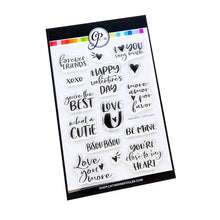 forever
FRIENDS
I ♥ YOU
very much
XOXO
HAPPY
valentine's
DAY
you're the
BEST
more
amor
por
favor
what a
CUTiE
LOVE
U
BE MINE
BISOU BISOU
Love
you more
YOU'RE
close to my
HEART
SHOP.CATHERINEPOOLER.COM